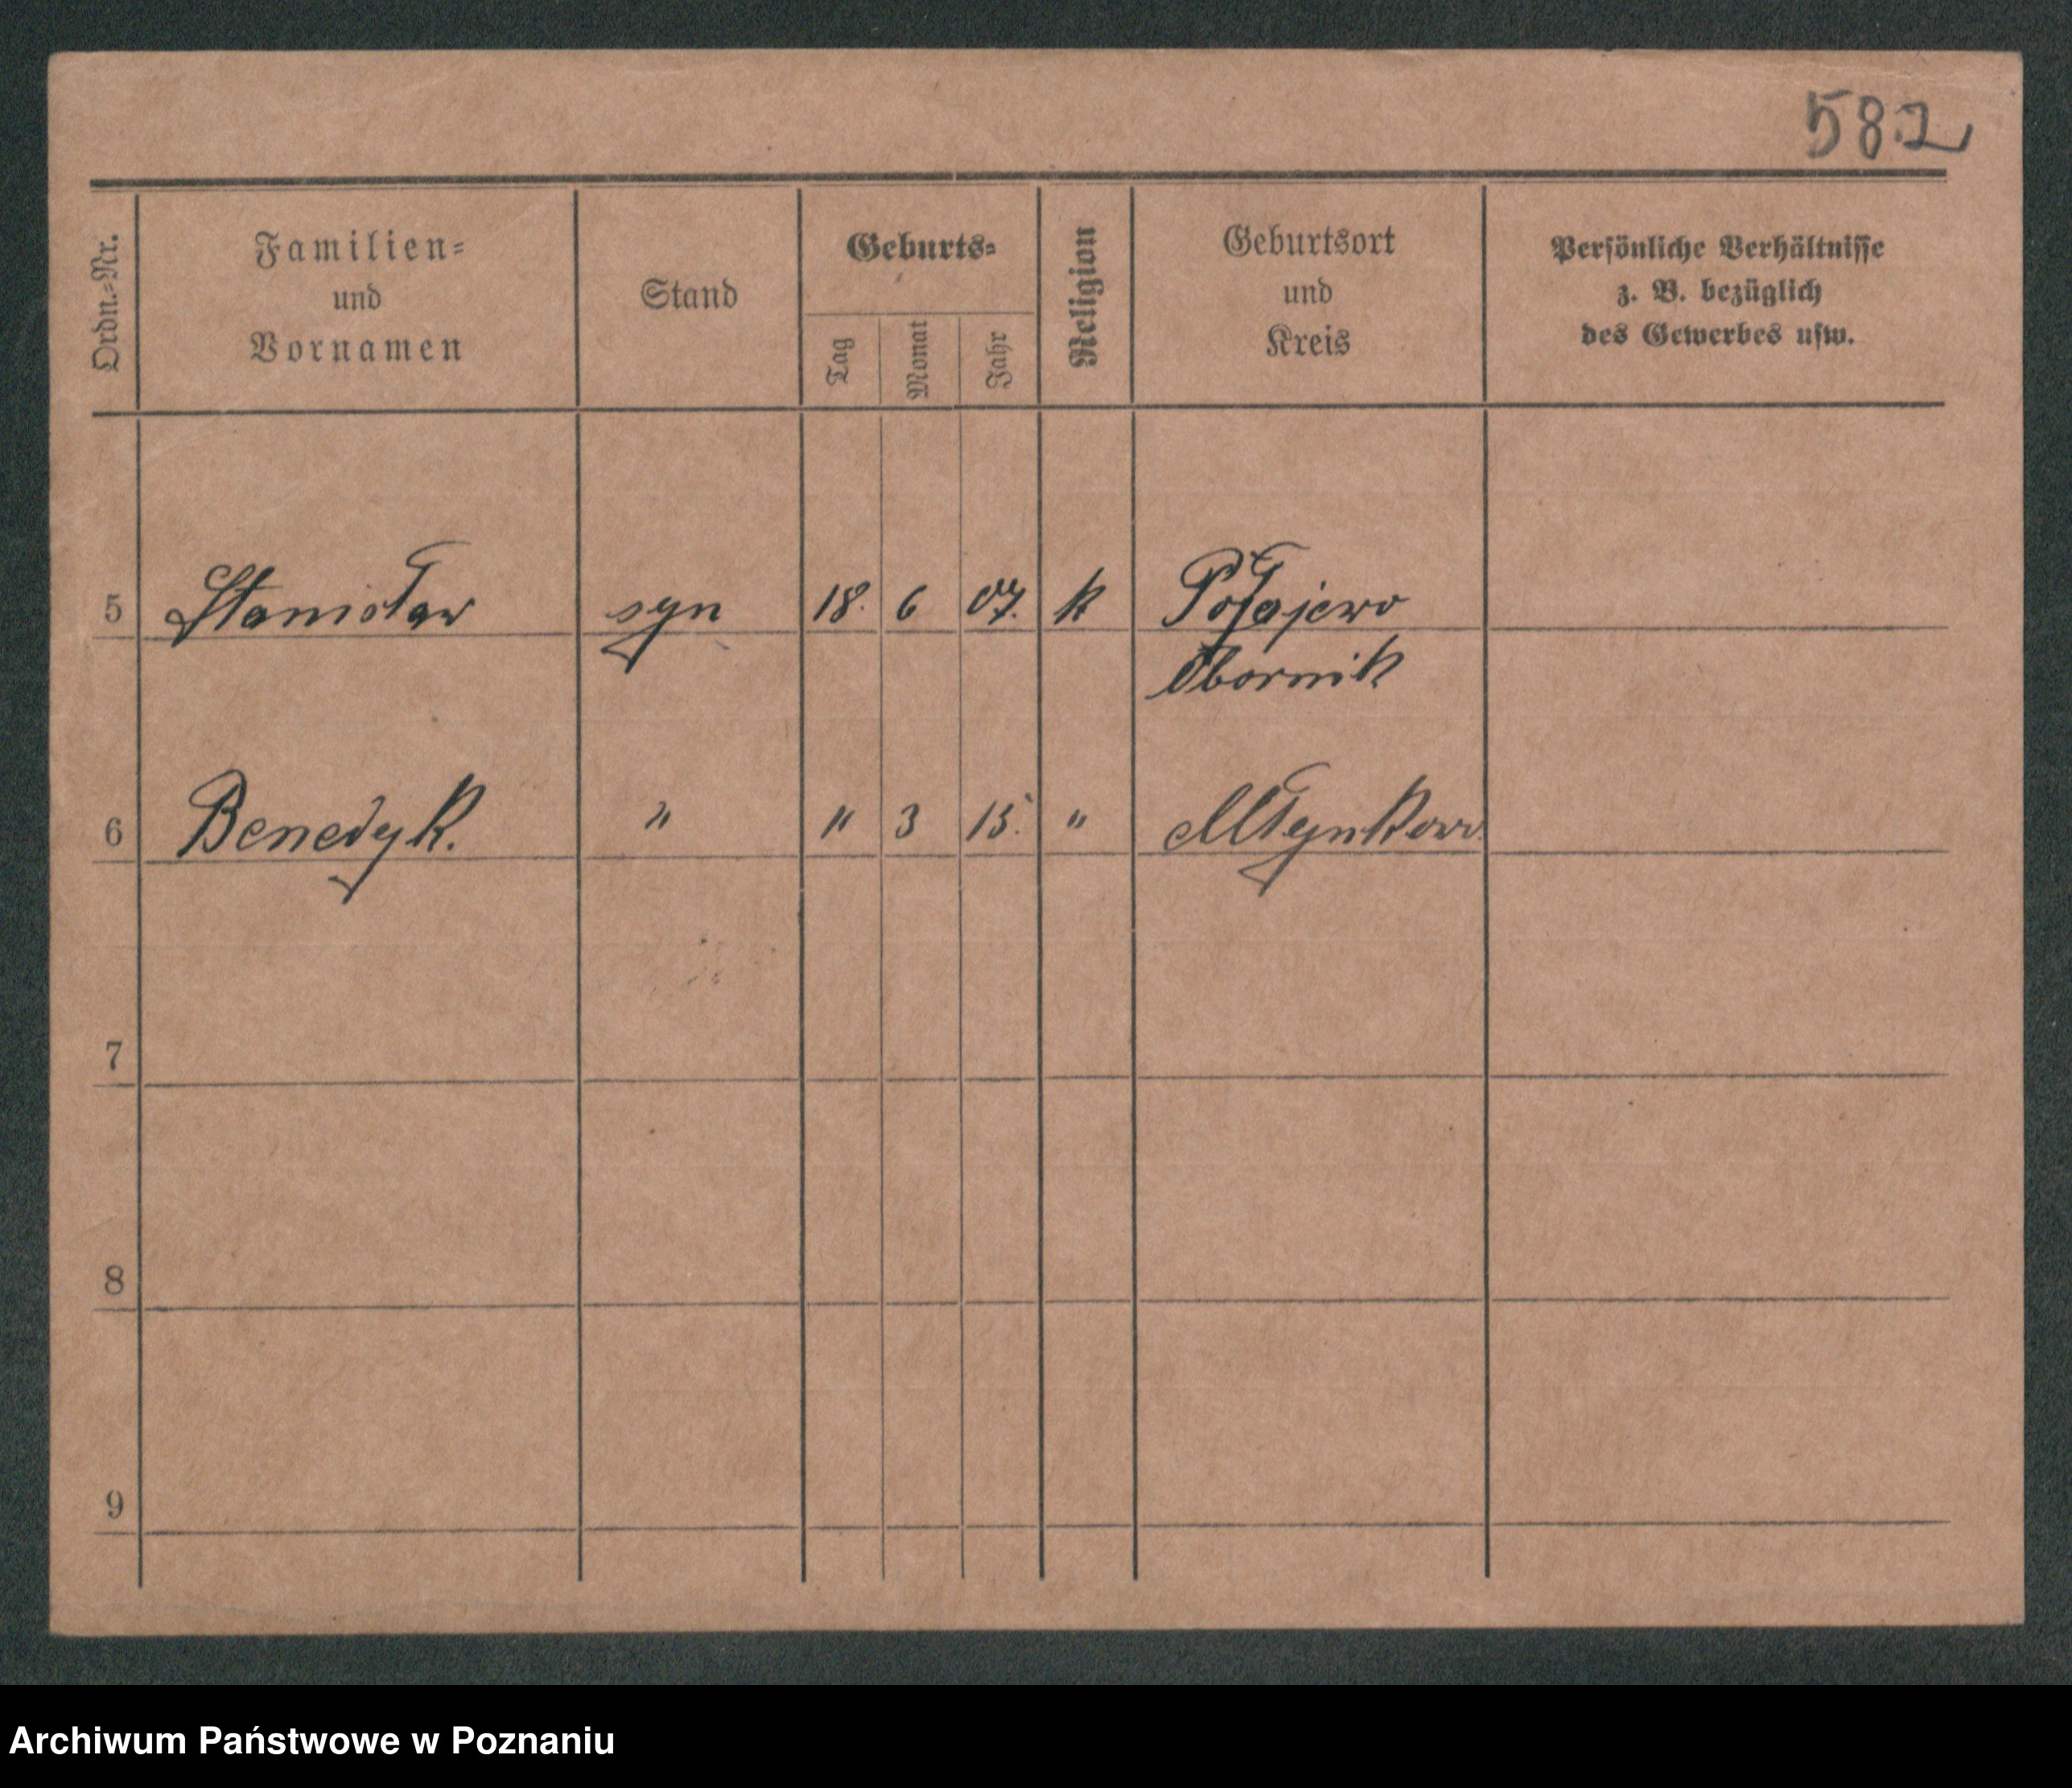 582
Ordn.-Nr.
Familien-
und
Vornamen
Stand
Geburts-
Tag
Monat
Jahr
Religion
Geburtsort
und
Kreis
Persönliche Verhältnisse
z. B. bezüglich
des Gewerbes usw.
5 Stanisław syn 18. 6 07. k Połajewo
Obornik
6 Benedyk. " " 3 15. " Młynkow
7
8
9
Archiwum Państwowe w Poznaniu